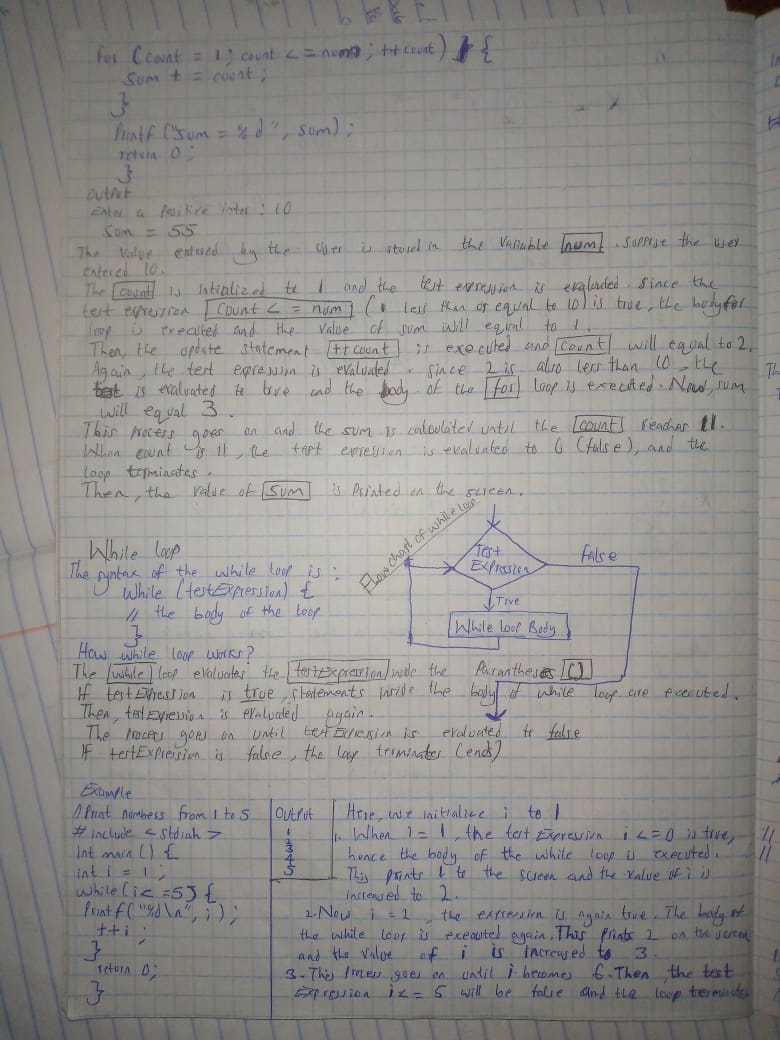 for (count = 1; count <= num; ++count) {
Sum += count;
}
Printf ("sum = %d", sum);
return 0;
}
output
Enter a Positive inter : 10
Sum = 55
The Value entered by the user is stored in the Variable num. Suppose the user
entered 10.
The count is intialized to 1 and the test expression is evaluated. Since the
test expression count <= num ( less than or equal to 10) is true, the body for
loop is executed and the value of sum will equal to 1.
Then, the update statement ++count is executed and count will equal to 2.
Again, the test expression is evaluated. since 2 is also less than 10, the
test is evaluated to true and the body of the for loop is executed. Now, sum
will equal 3.
This process goes on and the sum is calculated until the count reaches 11.
When count is 11, the test expression is evaluated to 0 (false), and the
loop terminates.
Then, the value of sum is Printed on the screen.
Flow chart of while loop
Test
Expression
false
True
While loop Body
While loop
The syntax of the while loop is :
while (testExpression) {
// the body of the loop
}
How while loop works?
The while loop evaluates the testExpression inside the Parantheses ()
If testExpression is true, statements inside the body of while loop are executed.
Then, testExpression is evaluated again.
The Process goes on until testExpression is evaluated to false
If testExpression is false, the loop terminates (ends)
Example
// Print numbers from 1 to 5
# include <stdioh>
Int main () {
int i = 1;
while (i <= 5) {
Printf ("%d\n", i);
++i;
}
return 0;
}
OutPut
1
2
3
4
5
Here, we initialize i to 1
1. When i = 1, the test Expression i <= 0 is true,
hence the body of the while loop is executed.
This prints 1 to the screen and the value of i is
increased to 2.
2. Now i = 2, the expression is again true. The body of
the while loop is executed again. This Prints 2 on the screen
and the value of i is increased to 3.
3 - This Process goes on until i becomes 6. Then, the test
Expression i <= 5 will be false and the loop terminates